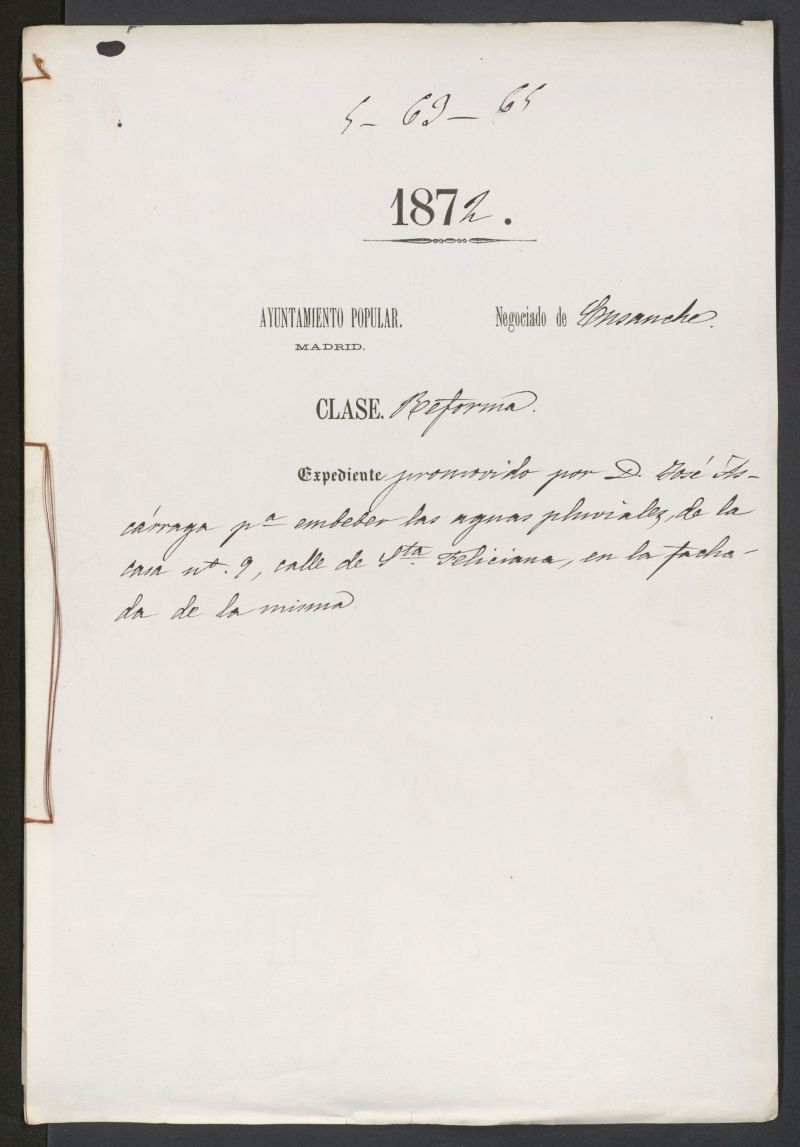 5 - 63 - 65
1872.
AYUNTAMIENTO POPULAR. Negociado de Ensanche.
MADRID.
CLASE. Reforma.
Expediente promovido por D. José As-
cárraga pª embeber las aguas pluviales, de la
casa nº. 9, calle de Sta. Feliciana, en la facha-
da de la misma